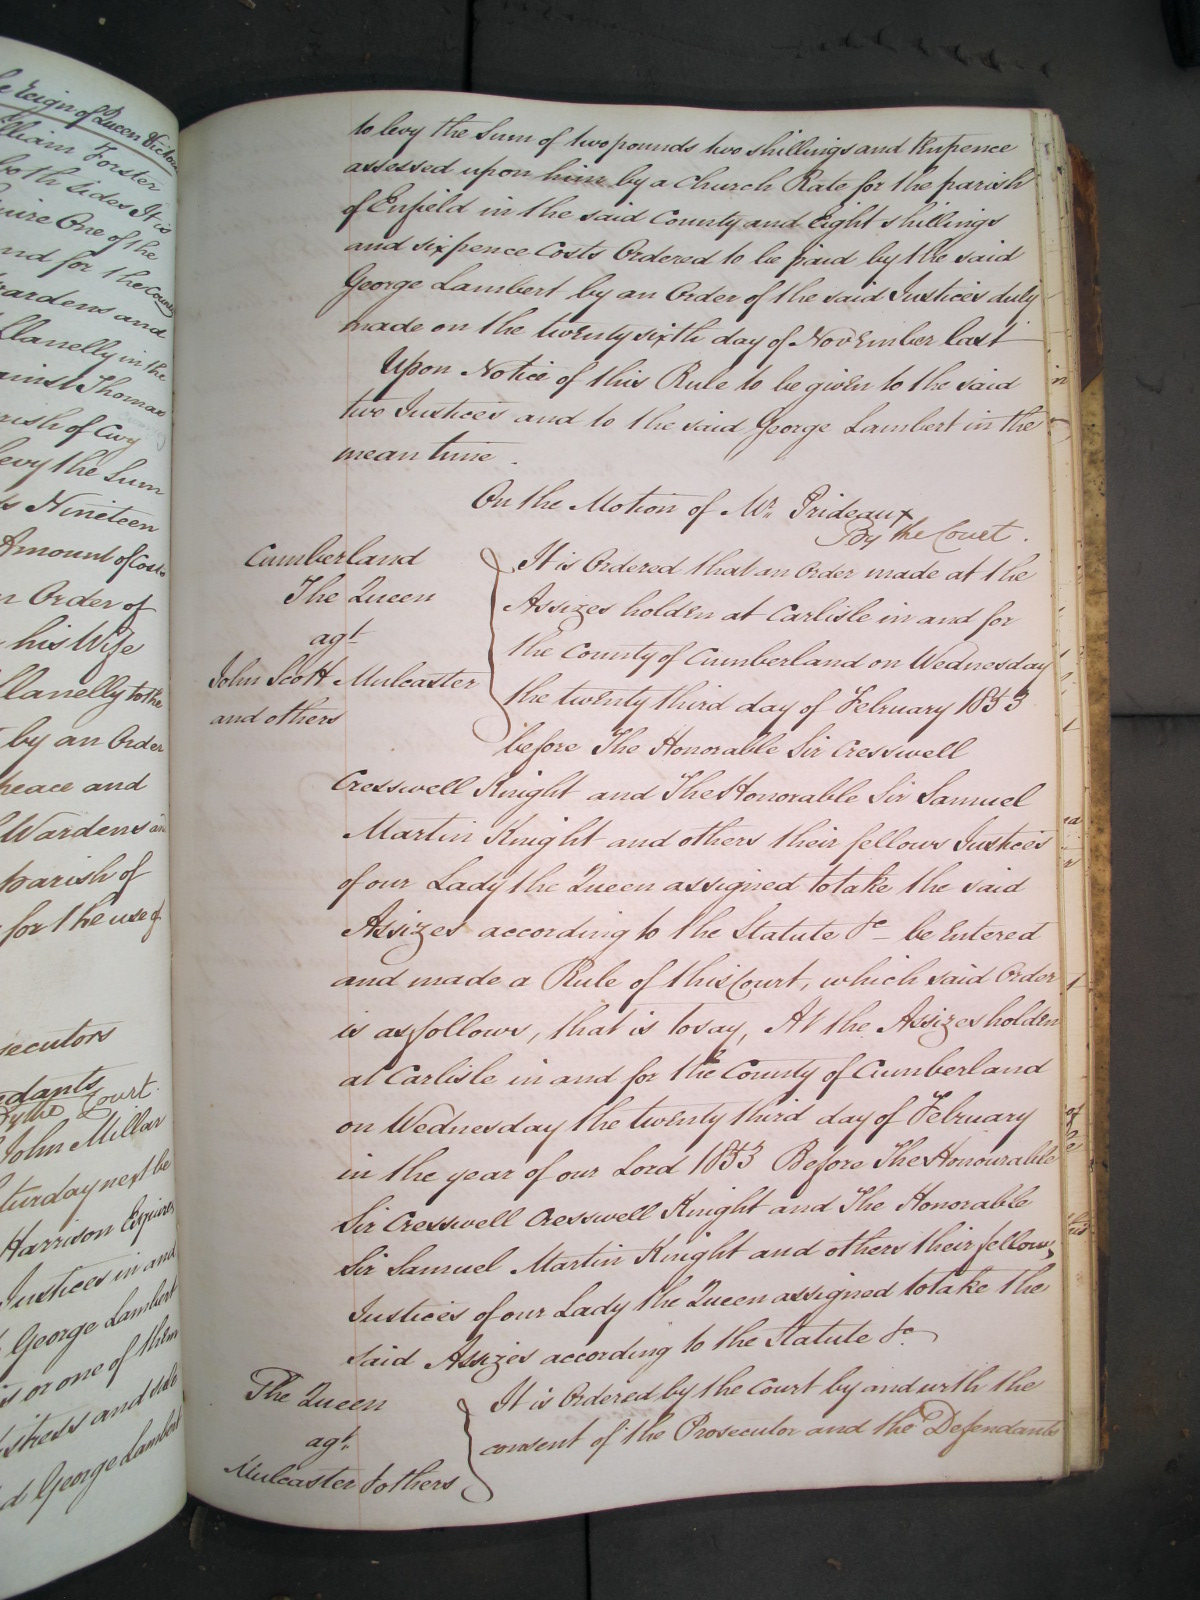 e reign of Queen Victoria
lliam Forster
both sides It is
uire One of the
nd for the County
wardens and
Llanelly in the
ainst Thomas
rish of Cwy
levy the Sum
s Nineteen
Amount of Costs
n Order of
his Wife
Llanelly to the
by an Order
peace and
Wardens an
parish of
for the use of
secutors
dants
By the Court.
John Millar
turday next be
Harrison Esquires
Justices in and
George Lambert
is or one of them
istress and sale
d George Lambert
to levy the Sum of two pounds two shillings and
assessed upon him by a Church Rate for the parish
of Enfield in the said County and Eight shillings
and sixpence Costs Ordered to be paid by the said
George Lambert by an Order of the said Justices duly
made on the twenty sixth day of November last
Upon Notice of this Rule to be given to the said
two Justices and to the said George Lambert in the
mean time.
On the Motion of Mr. Prideaux
By the Court.
Cumberland
The Queen
agt
John Scott Mulcaster
and others
It is Ordered that an Order made at the
Assizes holden at Carlisle in and for
the County of Cumberland on Wednesday
the twenty third day of February 1853
before The Honorable Sir Cresswell
Cresswell Knight and The Honorable Sir Samuel
Martin Knight and others their fellows Justices
of our Lady the Queen assigned to take the said
Assizes according to the Statute &c - be Entered
and made a Rule of this Court, which said Order
is as follows, that is to say, At the Assizes holden
at Carlisle in and for the County of Cumberland
on Wednesday the twenty third day of February
in the year of our Lord 1853 Before The Honourable
Sir Cresswell Cresswell Knight and The Honorable
Sir Samuel Martin Knight and others their fellows
Justices of our Lady the Queen assigned to take the
said Assizes according to the Statute &c
The Queen
agt.
Mulcaster & others
It is Ordered by the Court by and with the
consent of the Prosecutor and the Defendants